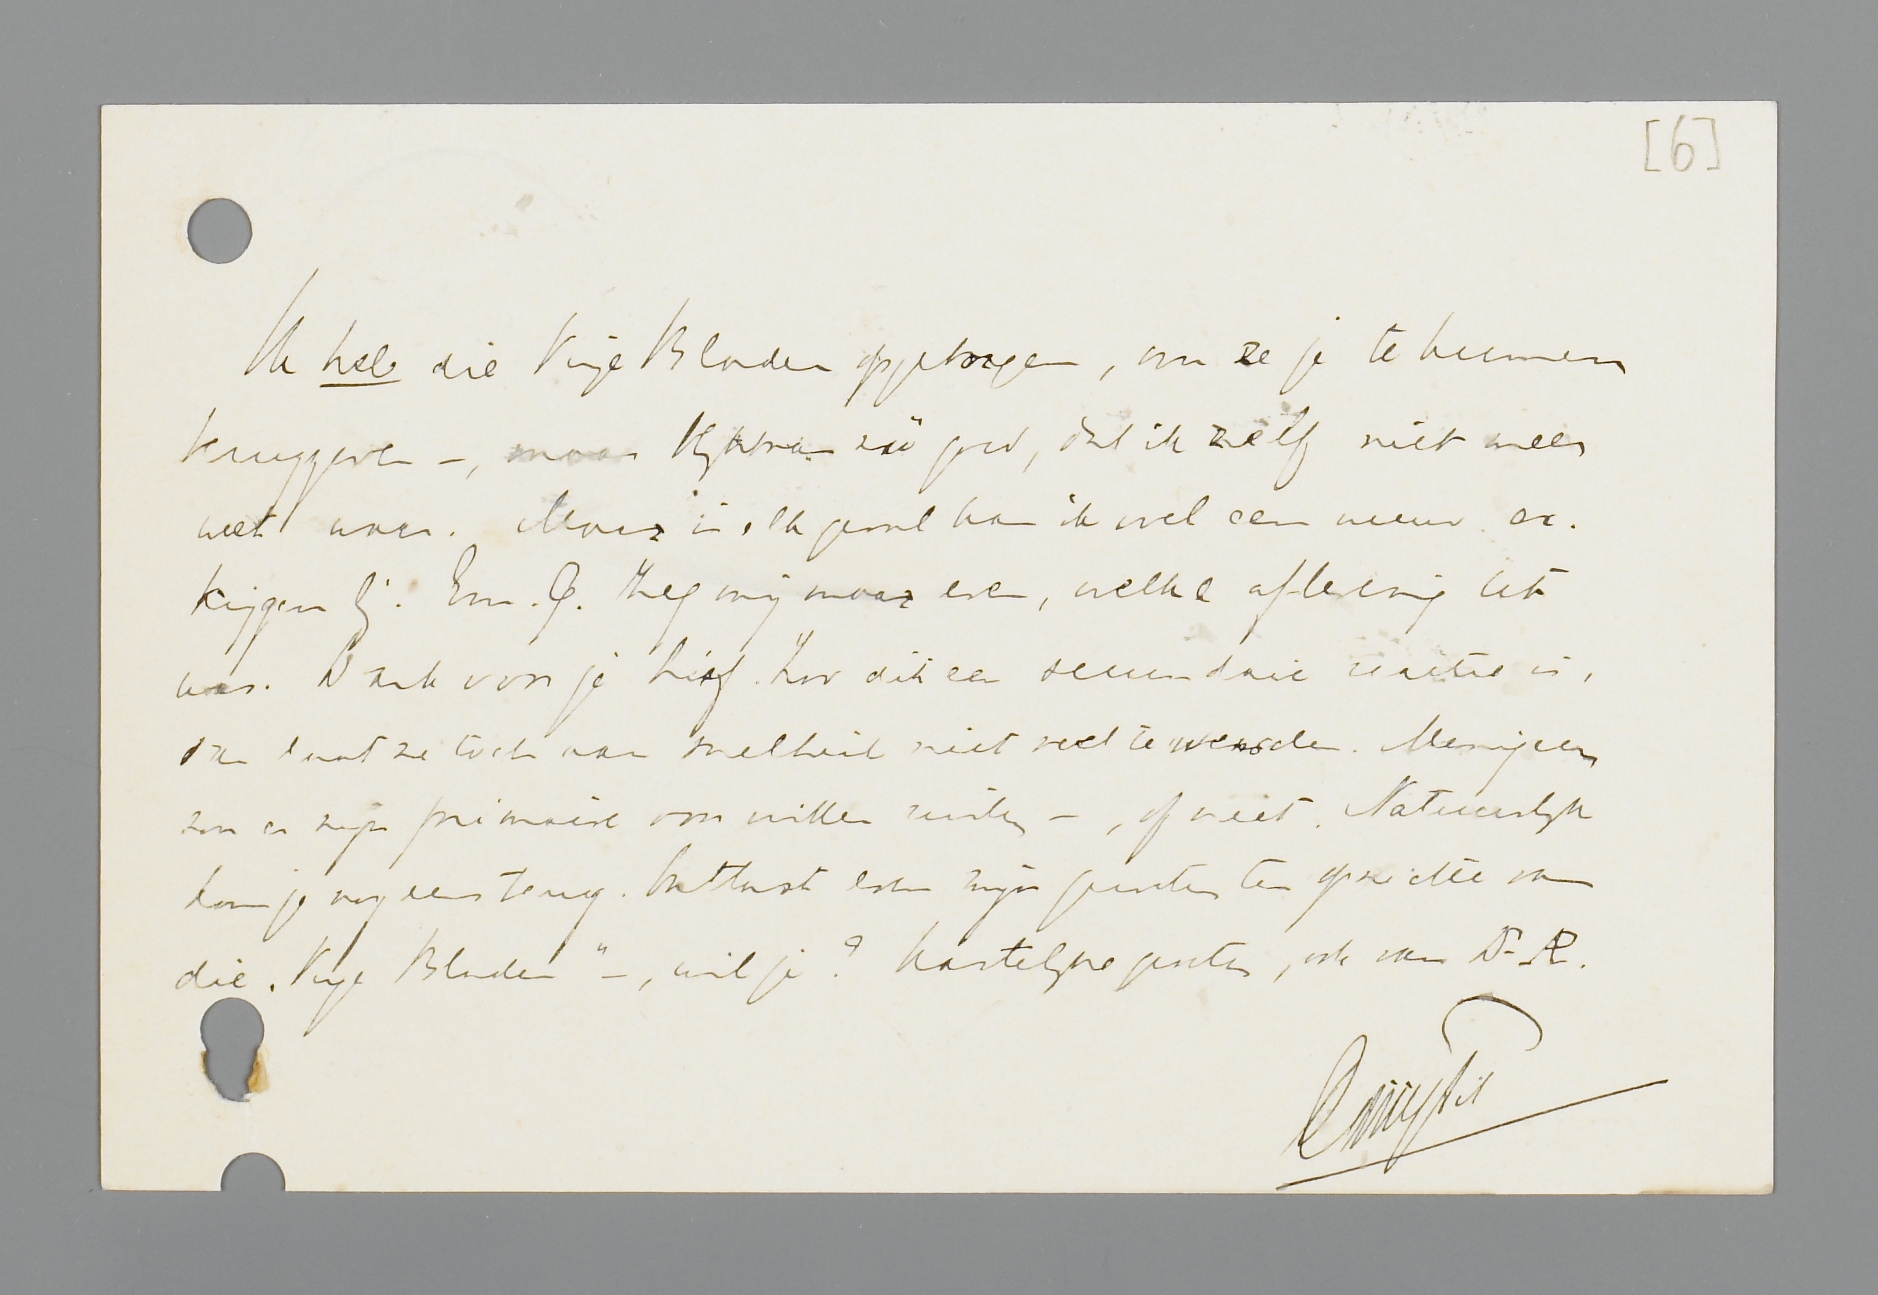 [6]
Ik heb die Vrije Bladen opgeborgen, om ze je te kunnen
teruggeven –, maar zóó goed, dat ik zelf niet meer
weet waar. Maar in elk geval kan ik wel een nieuw ex.
krijgen bij Em. Q. Zeg mij maar even, welke aflevering het
was. Dank voor je brief. Zoo dit een secundaire reactie is,
dan laat ze toch aan snelheid niet veel te wenschen. Menigeen
zou er zijn primaire voor willen ruilen –, of niet. Natuurlijk
kom je nog eens terug. even mijn ten opzichte van
die "Vrije Bladen" –, wil je? Hartelijke groeten, ook van D. R.